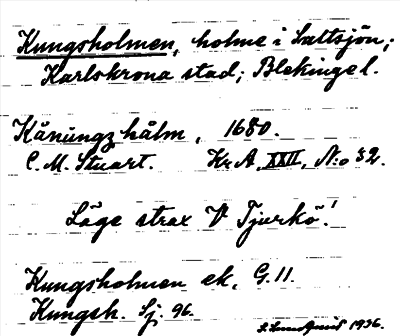 Kungsholmen, holme i Saltsjön;
Karlskrona stad; Blekinge l.
Kånungz hålm, 1680.
C. M. Stuart. Kr. A. XXII, N:o 32.
Läge strax V Tjurkö!
Kungsholmen ek, G. 11.
Kungsh. Sj. 96.
1936.